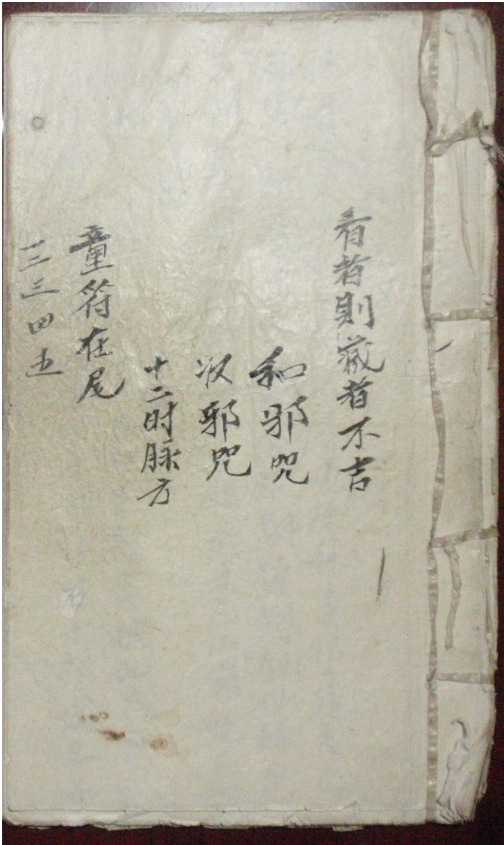 看者則藏者不吉
和邪咒
收邪咒
十二时脉方
童符在尾
二三四五